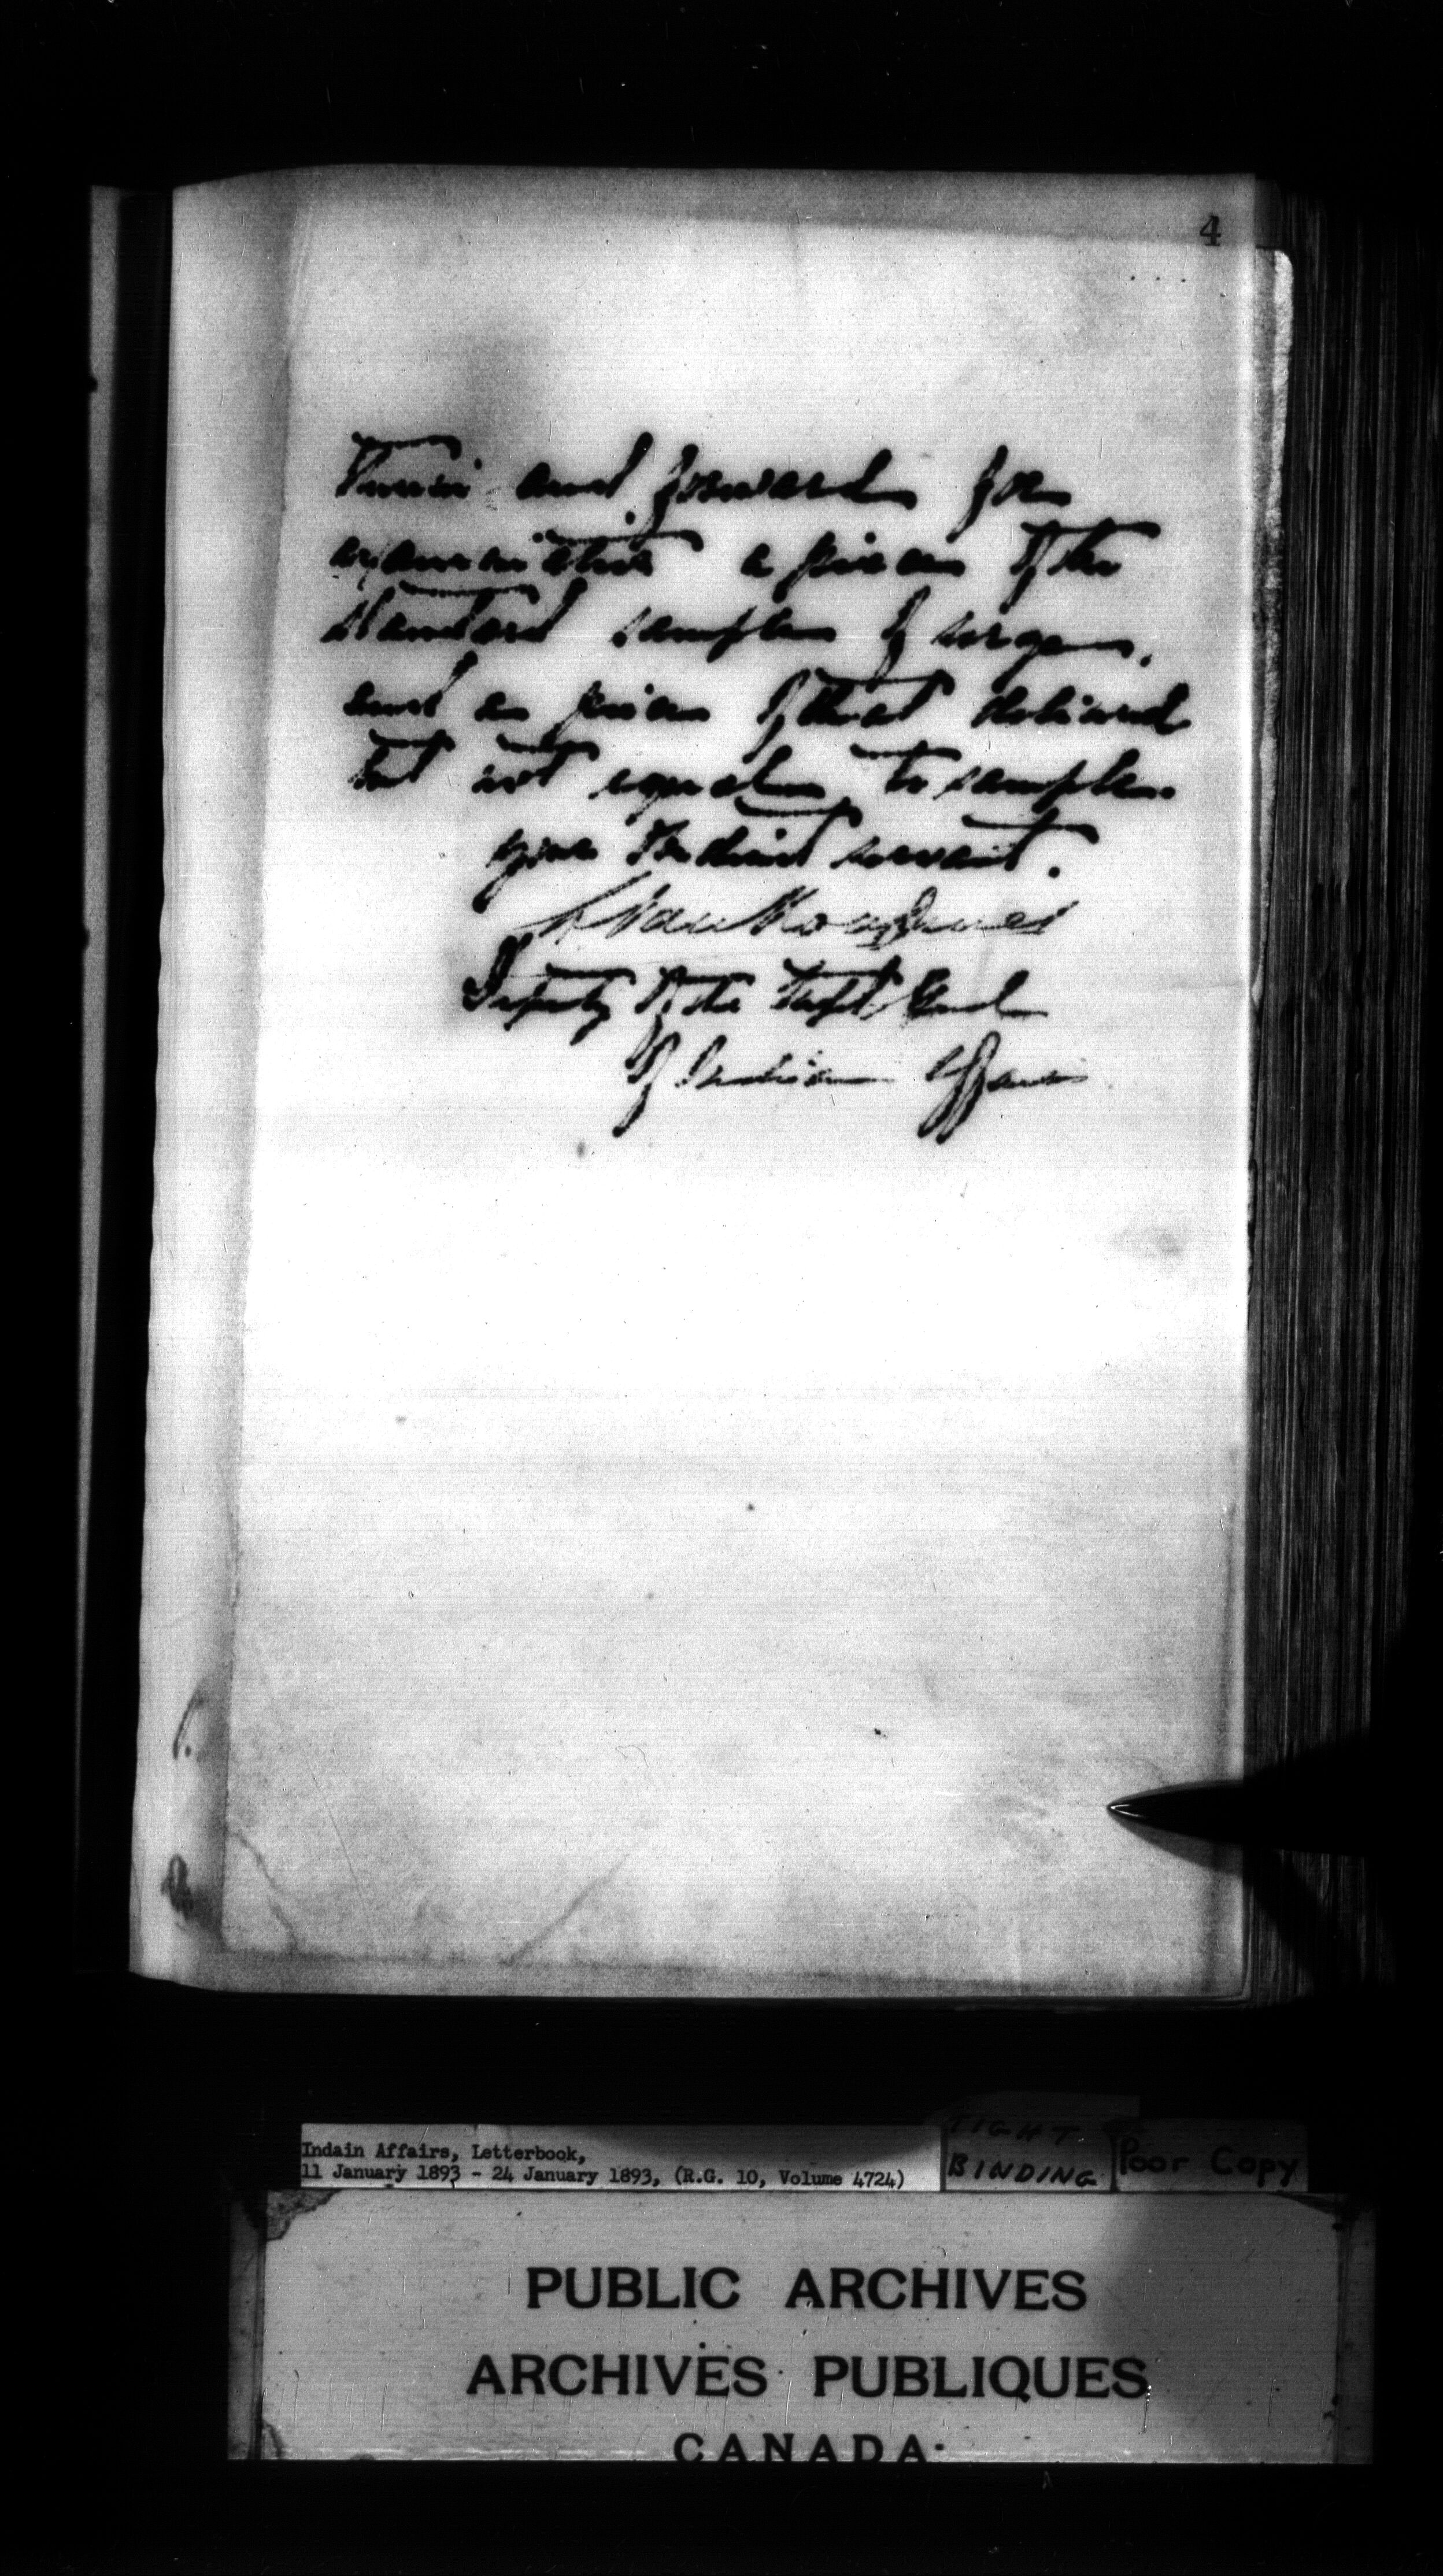 4
and forward for
examination a piece of the
standard sample of serge,
and a piece of that delivered
but not equal to sample.
your obedient servant.
L Vankoughnet
Deputy of the Supt Genl
of Indian Affairs
Indain Affairs, Letterbook,
11 January 1893 - 24 January 1893, (R.G. 10, Volume 4724)
TIGHT
BINDING
Poor Copy
PUBLIC ARCHIVES
ARCHIVES PUBLIQUES
CANADA